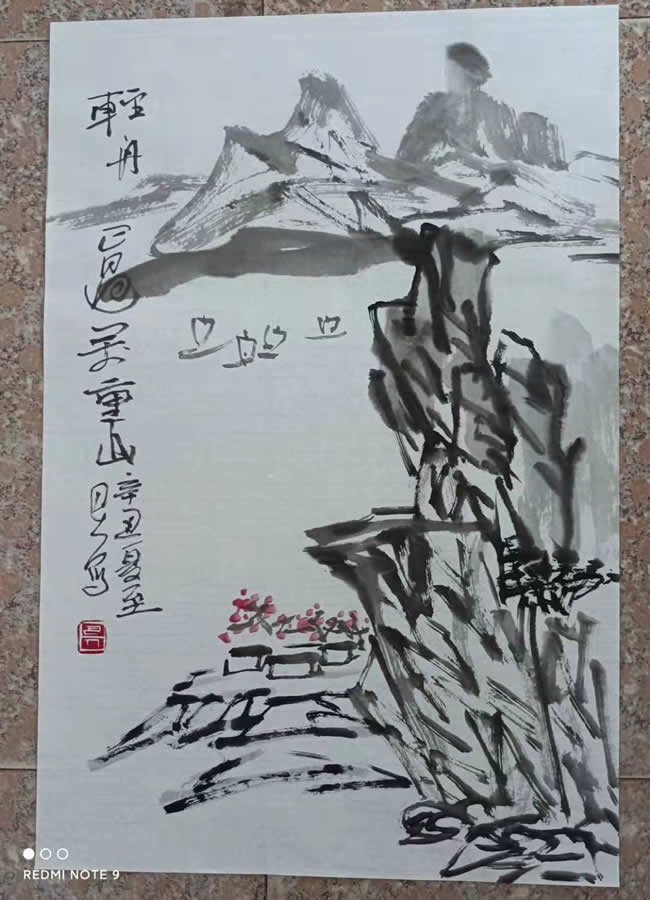 輕舟
已過萬重山
辛丑夏至
写
REDMI NOTE 9